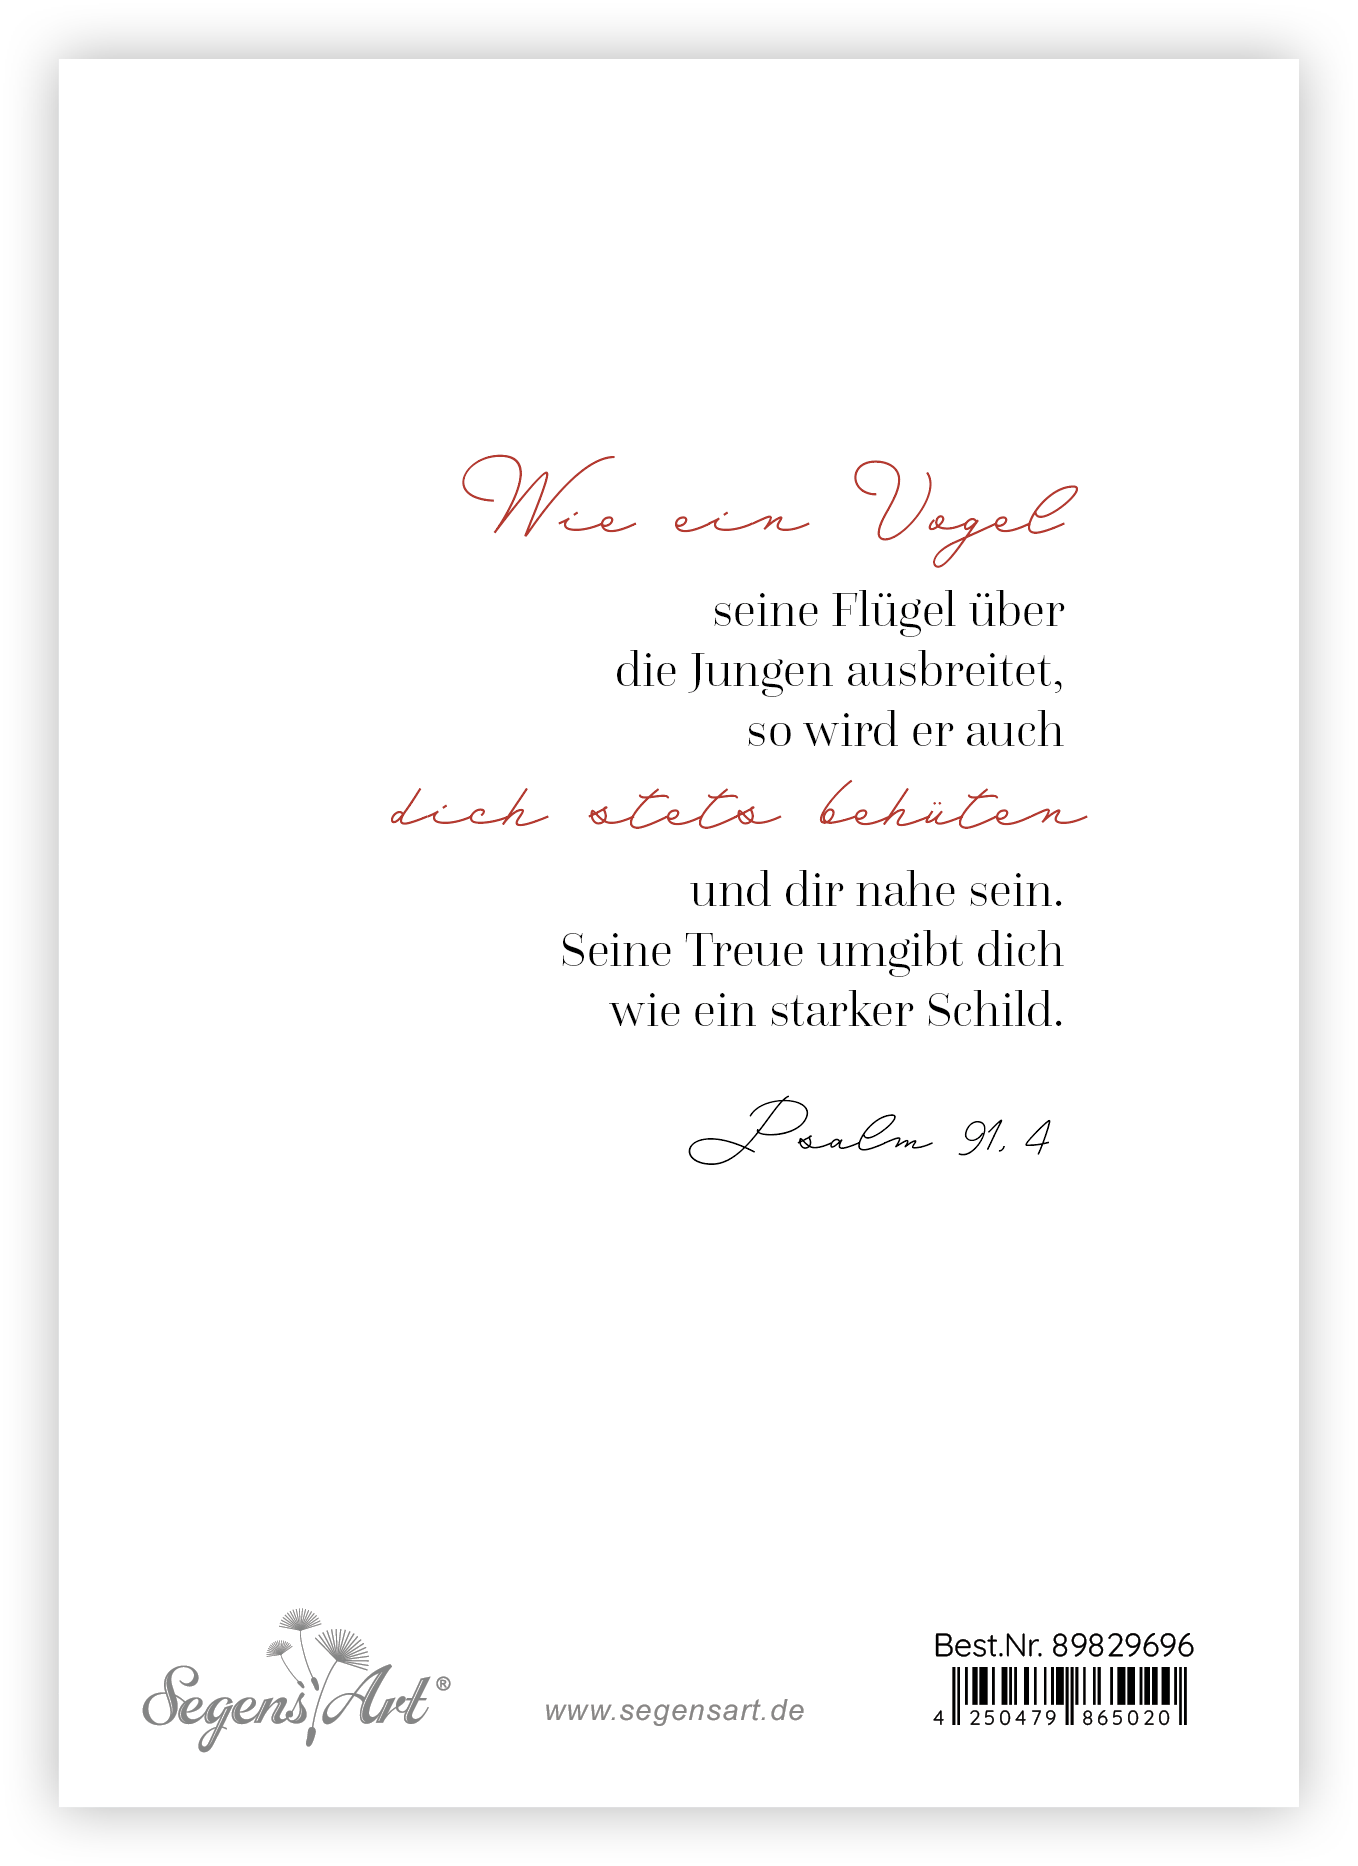 Wie ein Vogel
seine Flügel über
die Jungen ausbreitet,
so wird er auch
dich stets behüten
und dir nahe sein.
Seine Treue umgibt dich
wie ein starker Schild.
Psalm 91, 4
Segens Art ®
www.segensart.de
Best.Nr. 89829696
4 250479 865020